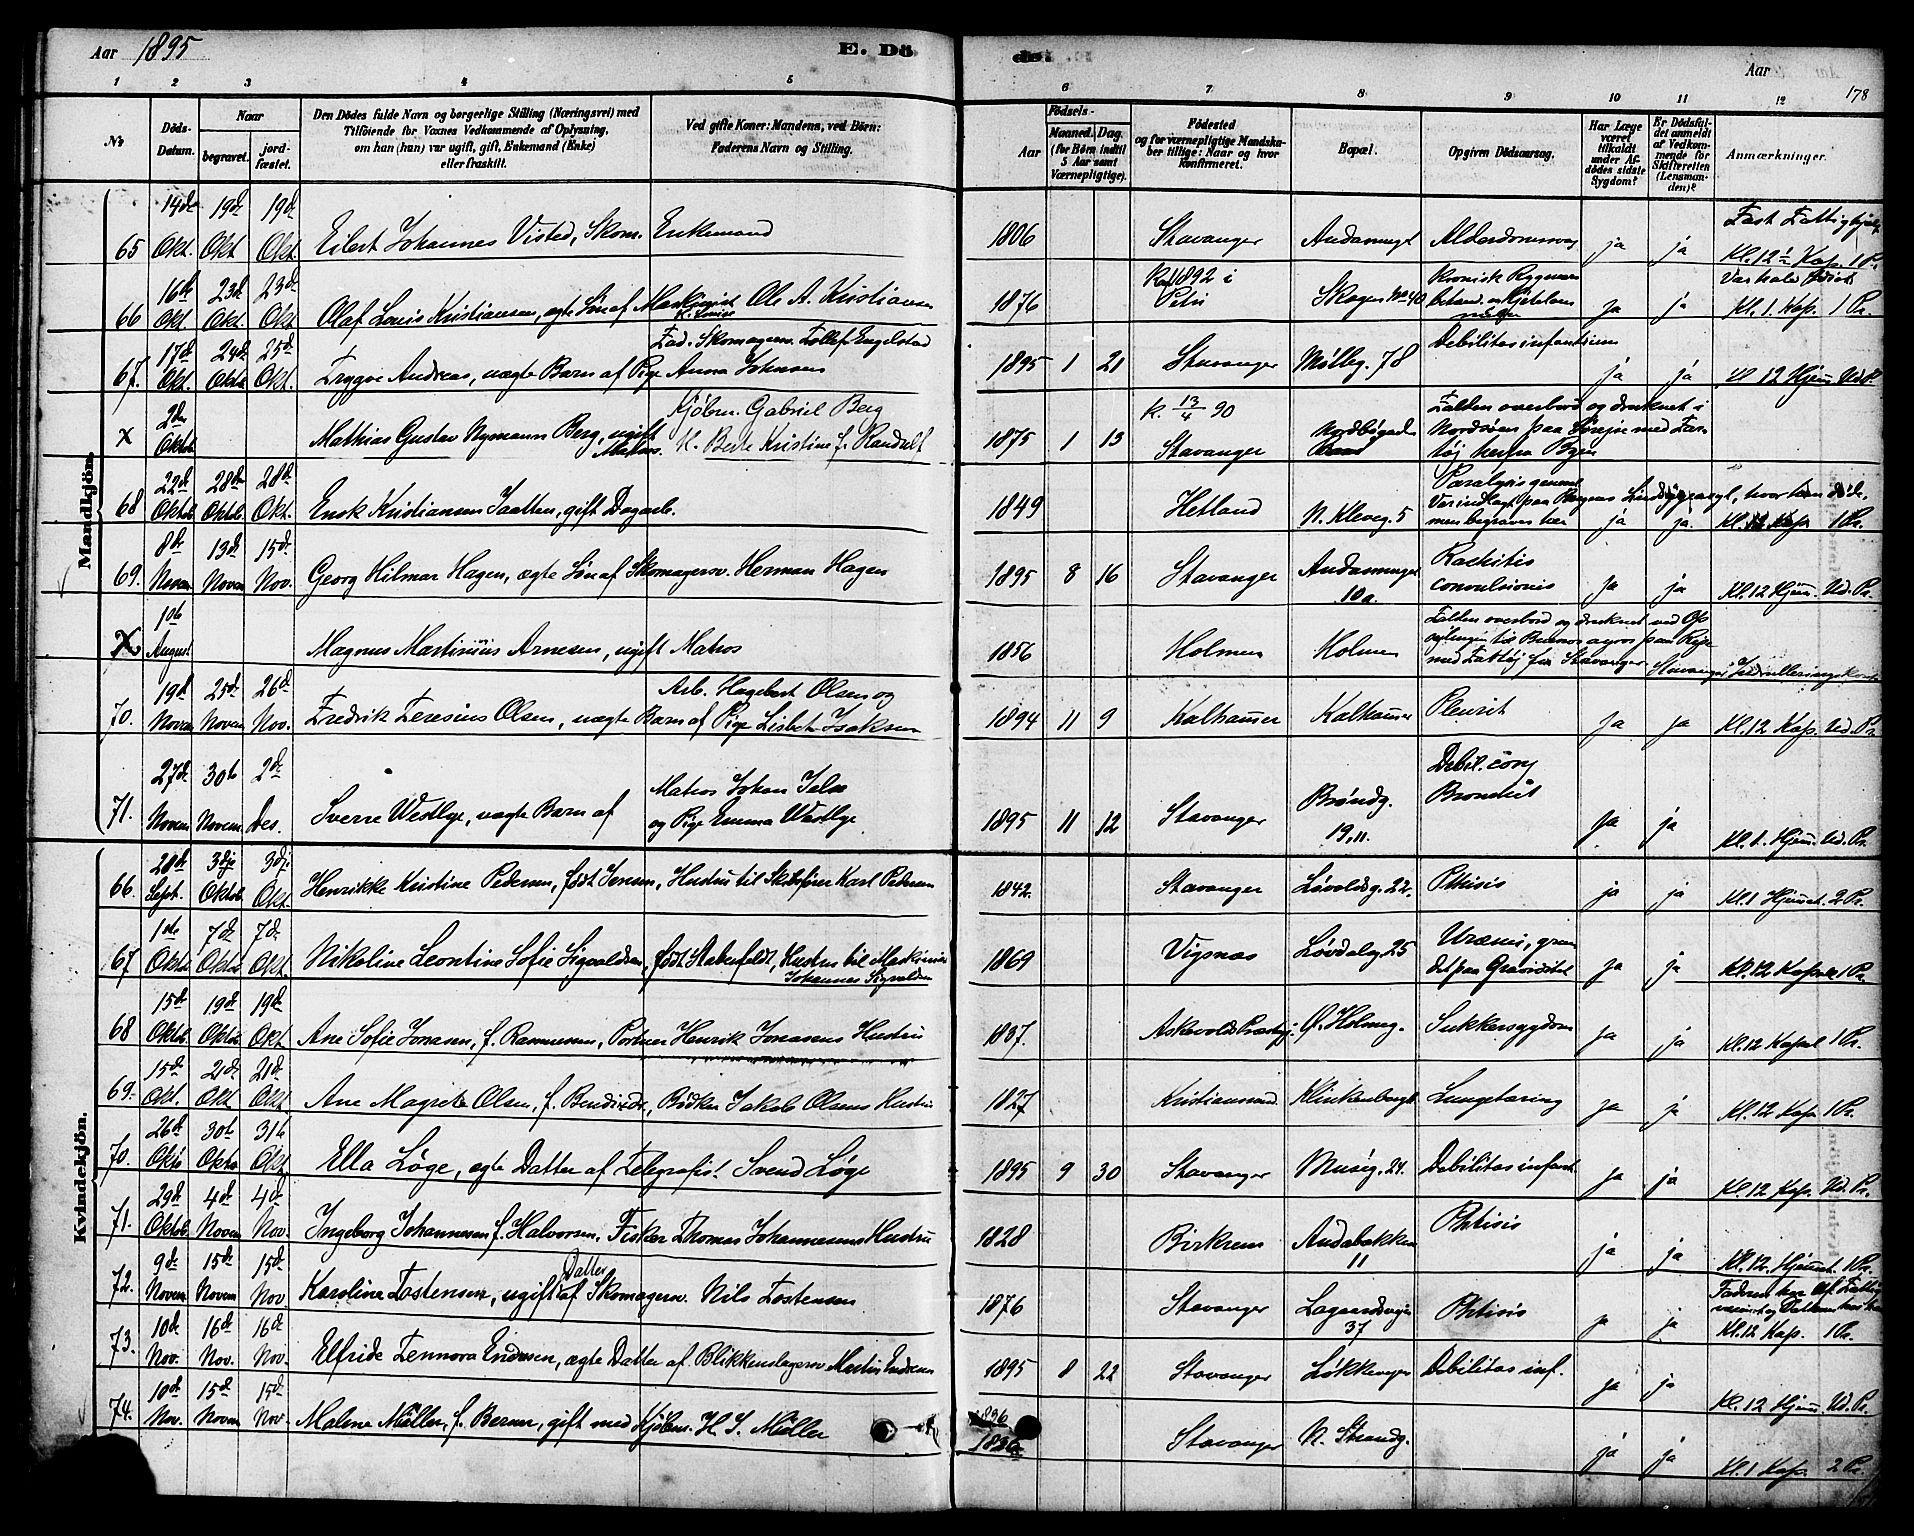 Aar 1895
E. Dö
de.
Aar
178
1 2 3 4 5 6 7 8 9 10 11 12
No
Döds-Datum.
Naar
begravet.
jordfæstet.
Den Dödes fulde Navn og borgerlige Stilling (Næringsvei) med
Tilföiende for Voxnes Vedkommende af Oplysning,
om han (hun) var ugift, gift, Enkemand (Enke)
eller fraskilt.
Ved gifte Koner: Mandens, ved Börn:
Faderens Navn og Stilling.
Födsels-
Aar
Maaned. Dag.
(for Börn indtil
5 Aar samt
Værnepligtige).
Födested
og for værnepligtige Mandska-
ber tillige: Naar og hvor
konfirmeret.
Bopæl.
Opgiven Dödsaarsag.
Har Læge
været
tilkaldt
under Af-
dödes sidste
Sygdom?
Er Dödsfal-
det anmeldt
af Vedkom-
mende for
Skifteretten
(Lensman-
den)?
Anmærkninger.
Mandkjön.
65 14de Okt. 19de Okt 19de Okt. Eilert Johannes Visted, Skom. Enkemand 1806 Stavanger Alderdomssvag ja ja Fast Fattighjælp Kl. 12½ Kap. 1 Pr.
66 16de Okt. 23de Okt. 23de Okt Olaf Louis Kristiansen, ægte Søn af Maskinist Ole A. Kristiansen 1876 1892 i Petri Skagen No 40 kronisk ja ja Kl. 1. Kap. 1 Pr.
67. 17de Okt. 24de Oktb 25de Okt. Trygve Andreas, uægte Barn af Pige Anna Johnsen
Fad. Skomagersv. Tollef Engelstad 1895 1 21 Stavanger Mølleg. 78 Debilitas infantum ja ja Kl 12 Hjem. Ved Pr.
x 2den Oktob Mathias Gustav Nymann Berg, ugift Matros. Kjøbm. Gabriel Berg
H. Berte Kristine f. Randulf 1875 1 13 k. 13/4 90 Stavanger Falden overbord og druknet i
Nordsøen paa Reise med Far-
tøj herfra Byen
68 22de Oktob 28de Oktob. 28de Okt. Enok Kristiansen Saatten, gift Dagarb. 1849 Hetland N. Kleveg. 5 Paralysis general
Var indlagt paa Bergens Sindssygeasyl, hvor han døde,
men begraves her ja ja. Kl. 12 Kap 1 Pr.
69. 8de Novem 13de Novem 15de Nov. Georg Hilmar Hagen, ægte Søn af Skomagersv. Herman Hagen 1895 8 16 Stavanger 10a. Rachitis
convulsiones ja ja Kl. 12 Hjem. Ved. Pr.
X 1ste August Magnus Martinius Arnesen, ugift Matros 1856 Holmen Holmen Falden overbord og druknet ved Op-
med Fartøj fra Stavanger
70. 19de Novem 25de Novem 26de Nov. Fredrik Teresius Olsen, uægte Barn af Pige Lisbet Isaksen
Arb. Hagebert Olsen og 1894 11 9 Kalhammer Kalhammer Pleurit ja ja Kl. 12 Kap. Ved. Pr
71. 27de Novem 30te Novem 2de Des. Sverre Westlye, uægte Barn af
Matros Johan
og Pige Emma Westlye 1895 11 12 Stavanger Brøndg. 19, 11. Debil. cong
Bronchit ja ja Kl. 1. Hjem. Ved. Pr.
Kvindekjön.
66 28de Sept. 3dje Oktob. 3dj. Okt. Henrikke Kristine Pedersen, født Jensen, Hustru til Skibsfører Karl Pedersen 1842. Stavanger Løvoldsg. 22. Pthisis ja ja Kl. 1 Hjemmet. 2 Pr.
67 1ste Oktob 7de Oktob 7de Okt Nikoline Leontine Sofie Sigvaldsen, født Stabenfeldt, Hustru til Maskinist
Johannes Sigvaldsen 1869 Vigsnæs Løvdalsg. 25 Uræmi, grun-
det paa Graviditet ja ja Kl. 12 Kapel 1 Pr.
68 15de Oktob 19de Oktob 19de Okt Ane Sofie Jonasen, f. Rasmussen, Portner Henrik Jonasens Hustru 1837. Askevold Ø. Holmeg. Sukkersygdom ja ja Kl. 12 Kapel 1 Pr.
69. 15de Okt. 21de Okt 21de Okt Ane Magrete Olsen, f. Bendixde, Bødker Jakob Olsens Hustru 1827 Kristianssand. Klinkenbergg. Lungetæring ja ja Kl. 12 Kap 1 Pr.
70. 26de Okto 30te Okto 31te Okt Ella Løge, ægte Datter af Telegrafist Svend Løge 1895 9 30 Stavanger Museg. 24. Debilitas infant. ja ja Kl. 12 Kap. Ved. Pr.
71. 29de Oktob. 4de Novem 4de Nov. Ingeborg Johannesen f. Halvorsen, Fisker Thomas Johannesens Hustru 1828 Birkrem Andabakken
11 Phtisis ja ja Kl. 12. Hjemmet. 1 Pr.
72. 9de Novem 15de Novem 15de Nov Karoline Tostensen, ugift Datter af Skomagersv. Nils Tostensen 1876 Stavanger 37 Phtisis ja ja Kl. 12 Kap. 1 Pr.
73. 10de Nov. 16de Nov. 16de Nov. Elfride Lennora Endresen, ægte Datter af Blikkenslagersv Martin Endresen 1895 8 22 Stavanger Løkkeveien Debilitas inf. ja ja Kl. 12 Hjem. Ved. Pr.
74. 10de Nov. 15de Novem 15de Nov. Malene Müller, f. Bernn, gift med Kjøbm. H. S. Müller 1836 1836 Stavanger N. Strandg. ja ja Kl. 1 Kap. 2 Pr.